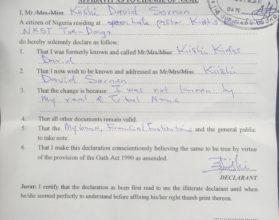 AFFIDAVIT AS TO CHANGE OF NAME
I, Mr./Mrs./Miss Kiishi David Saenan
A citizen of Nigeria residing at
NKST
do hereby solemnly declare as follow:
1. That I was formerly known and called Mr/Mrs/Miss Kiishi
David
2. That I now wish to be known and addressed as Mr/Mrs/Miss Kiishi
David Saenan
3. That the change is because: I was not known by
My real & Tribal Name
4. That all other documents remain valid.
5. That the My bank, Financial Institutions and the general public
to take note.
6. That I make this declaration conscientiously believing the same to be true by virtue
of the provision of the Oath Act 1990 as amended.
DECLARANT
Jurat: I certify that the declaration as been first read to me the illiterate declarant until when
he/she seemed perfectly to understand before affixing his/her right thumb print thereon.